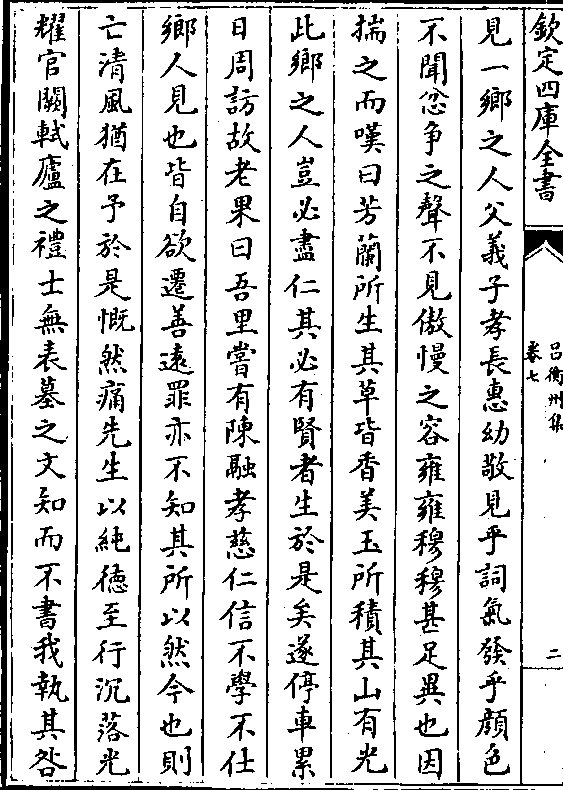 欽定四庫全書
呂衡州集
卷七
二
見一鄉之人父義子孝長惠幼敬見乎詞氣發乎顔色
不聞忿爭之聲不見傲慢之容雍雍穆穆甚足異也因
揣之而嘆曰芳蘭所生其草皆香美玉所積其山有光
此鄉之人豈必盡仁其必有賢者生於是矣遂停車累
日周訪故老果曰吾里嘗有陳融孝慈仁信不學不仕
鄉人見也皆自欲遷善逺罪亦不知其所以然今也則
亡清風猶在予於是慨然痛先生以純徳至行沉落光
耀官闕軾廬之禮士無表墓之文知而不書我執其咎